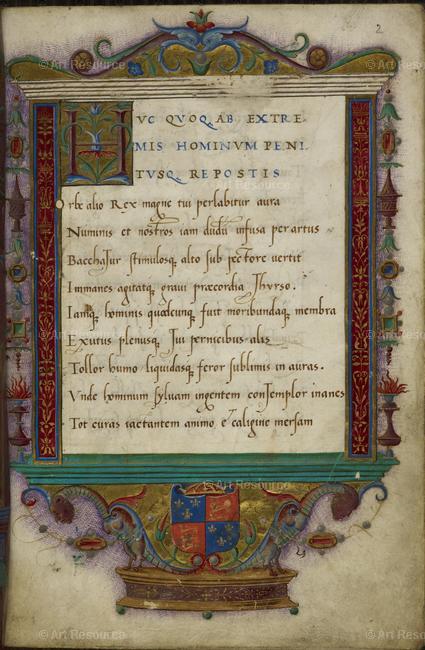 2
HVC QVOQ AB EXTRE-
MIS HOMINVM PENI
TVSQ REPOSTIS
Orbe alio Rex magne tui perlabitur aura
Numinis et nostros iam dudū infusa per artus
Bacchatur stimulosq alto sub pectore vertit
Immanes agitatq graui praecordia Thyrso.
Iamq hominis quodcunq fuit moribundaq membra
Exutus plenusq tui pernicibus alis
Tollor humo liquidasq feror sublimis in auras.
Vnde hominum syluam ingentem contemplor inanes
Tot curas iactantem animo et caligine mersam
© Art Resource
© Art Resource
© Art Resource
© Art Resource
© Art Resource
© Art Resource
© Art Resource
© Art Resource